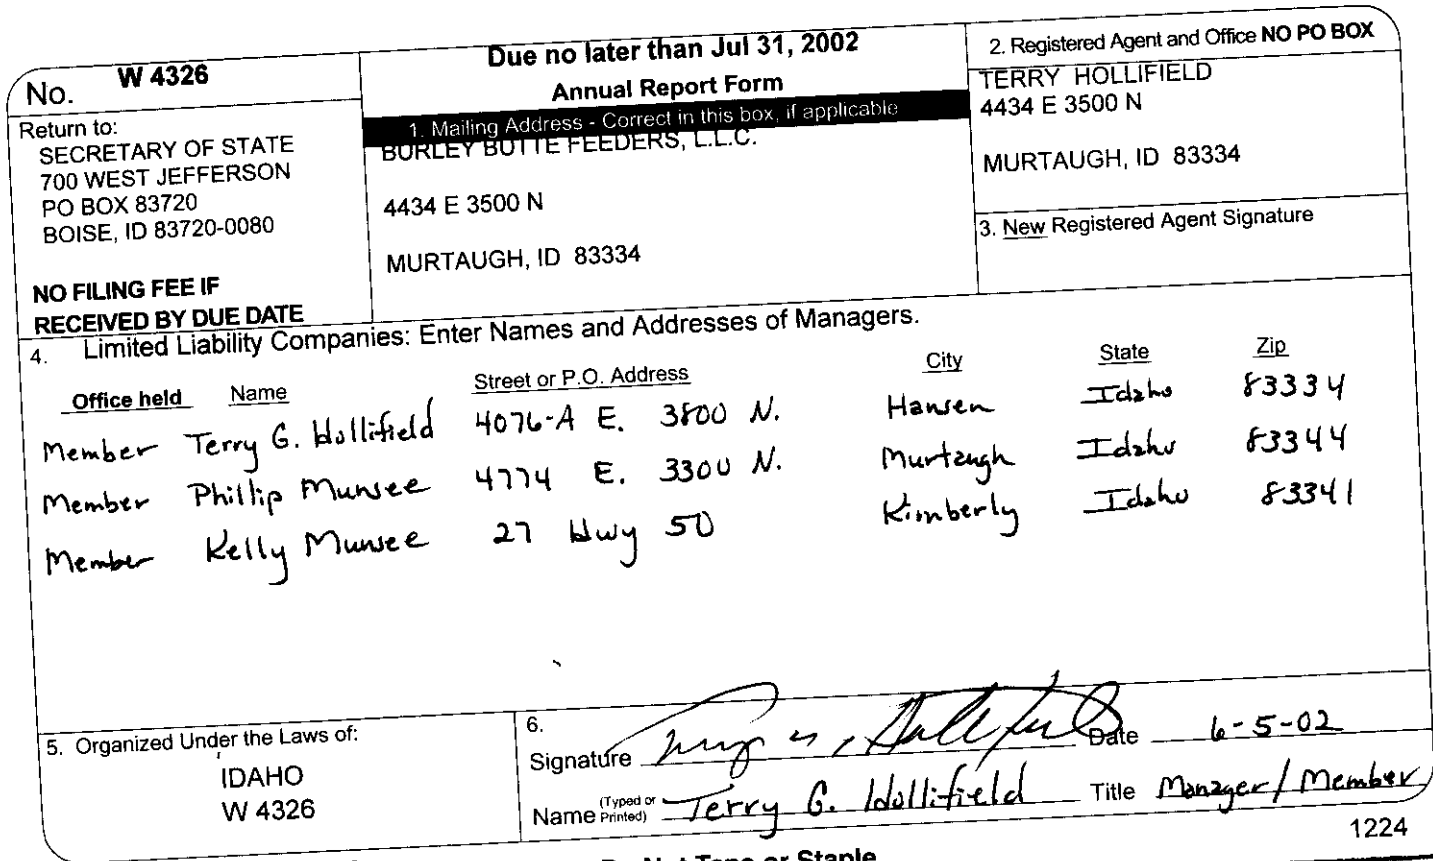 No. W 4326
Return to:
SECRETARY OF STATE
700 WEST JEFFERSON
PO BOX 83720
BOISE, ID 83720-0080
NO FILING FEE IF
RECEIVED BY DUE DATE
Due no later than Jul 31, 2002
Annual Report Form
1. Mailing Address - Correct in this box, if applicable
BURLEY BUTTE FEEDERS, L.L.C.
4434 E 3500 N
MURTAUGH, ID 83334
2. Registered Agent and Office NO PO BOX
TERRY HOLLIFIELD
4434 E 3500 N
MURTAUGH, ID 83334
3. New Registered Agent Signature
4. Limited Liability Companies: Enter Names and Addresses of Managers.
Office held Name Street or P.O. Address City State Zip
Member Terry G. Hollifield 4076-A E. 3800 N. Hansen Idaho 83334
Member Phillip Munsee 4774 E. 3300 N. Murtaugh Idaho 83344
Member Kelly Munsee 27 Hwy 50 Kimberly Idaho 83341
5. Organized Under the Laws of:
IDAHO
W 4326
6.
Signature Terry G. Hollifield Date 6-5-02
Name (Typed or Printed) Terry G. Hollifield Title Manager/Member
1224
Do Not Tape or Staple